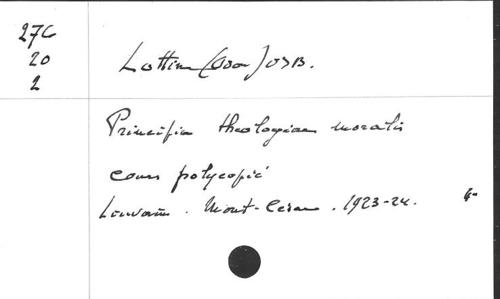 27G
20
2
Lottin (Odon) OSB.
Principia theologiae moralis
cours polycopié
Louvain. Mont-César. 1923-24. 4°